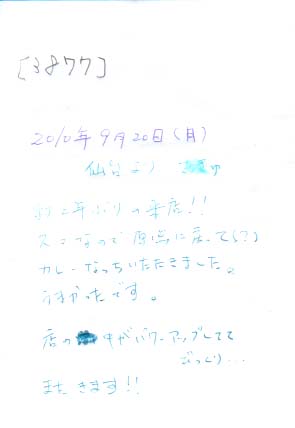 [3877]
2010年9月20日(月)
仙台より
約2年ぶりの来店!!
なので原点に戻って(?)
カレーなっちいただきました。
うまかったです。
店の中がパワーアップしてて
びっくり...
またきます!!